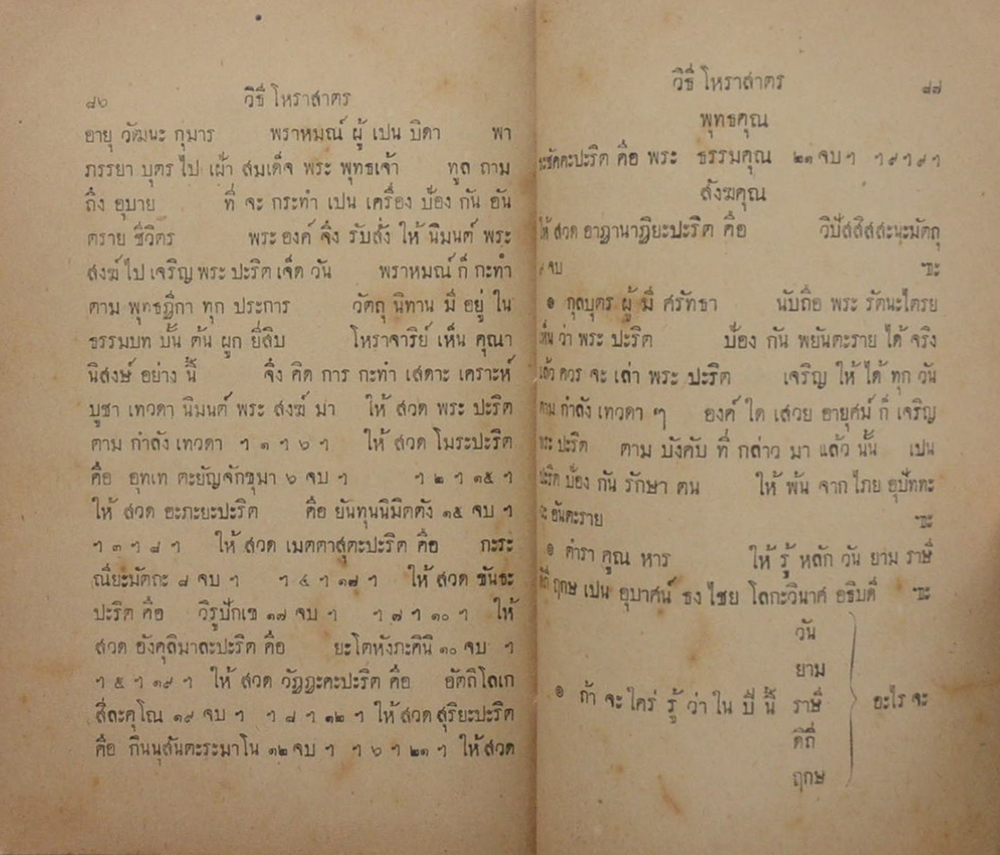 ๘๖ วิธี โหราสาตร
อายุ วัฒนะ กุมาร พราหมณ์ ผู้ เปน บิดา พา
ภรรยา บุตร ไป เฝ้า สมเด็จ พระ พุทธเจ้า ทูล ถาม
ถึง อุบาย ที่ จะ กระทำ เปน เครื่อง ป้อง กัน อัน
ตราย ชีวิตร พระ องค์ จึ่ง รับสั่ง ให้ นิมนต์ พระ
สงฆ์ ไป เจริญ พระ ปะริต เจ็ด วัน พราหมณ์ ก็ กะทำ
ตาม พุทธฎีกา ทุก ประการ วัตถุ นิทาน มี อยู่ ใน
ธรรมบท บั้น ต้น ผูก ยี่สิบ โหราจาริย์ เห็น คุณา
นิสงษ์ อย่าง นี้ จึ่ง คิด การ กะทำ เสดาะ เคราะห์
บูชา เทวดา นิมนต์ พระ สงฆ์ มา ให้ สวด พระ ปะริต
ตาม กำลัง เทวดา ฯ ๑ ฯ ๖ ฯ ให้ สวด โมระปะริต
คือ อุทเท ตะยัญจักขุมา ๖ จบ ฯ ฯ ๒ ฯ ๑๕ ฯ
ให้ สวด อะภะยะปะริต คือ ยันทุนนิมิตตัง ๑๕ จบ ฯ
ฯ ๓ ฯ ๘ ฯ ให้ สวด เมตตาสุตะปะริต คือ กะระ
ณียะมัตถะ ๘ จบ ฯ ฯ ๔ ฯ ๑๗ ฯ ให้ สวด ขันธะ
ปะริต คือ วิรูปักเข ๑๗ จบ ฯ ฯ ๗ ฯ ๑๐ ฯ ให้
สวด อังคุลิมาละปะริต คือ ยะโตหังภะคินิ ๑๐ จบ ฯ
ฯ ๕ ฯ ๑๙ ฯ ให้ สวด วัฏฏะกะปะริต คือ อัตถิโลเก
สีละคุโณ ๑๙ จบ ฯ ฯ ๘ ฯ ๑๒ ฯ ให้ สวด สุริยะปะริต
คือ กินนุสันตะระมาโน ๑๒ จบ ฯ ฯ ๖ ฯ ๒๑ ฯ ให้ สวด
วิธี โหราสาตร ๘๗
พุทธคุณ
คือ พระ ธรรมคุณ ๒๑ จบ ฯ ฯ ๙ ฯ ๙ ฯ
สังฆคุณ
ให้ สวด อาฏานาฏิยะปะริต คือ วิปัสสิสสะนะมัตถุ
๙ จบ ฯะ
๏ กุลบุตร ผู้ มี ศรัทธา นับถือ พระ รัตนะไตรย
เห็น ว่า พระ ปะริต ป้อง กัน พยันตะราย ได้ จริง
แล้ว ควร จะ เล่า พระ ปะริต เจริญ ให้ ได้ ทุก วัน
ตาม กำลัง เทวดา ๆ องค์ ใด เสวย อายุศม์ ก็ เจริญ
พระ ปะริต ตาม บังคับ ที่ กล่าว มา แล้ว นั้น เปน
ปะริต ป้อง กัน รักษา ตน ให้ พ้น จาก ไภย อุปัททะ
วะ อันตะราย ฯะ
๏ ตำรา คูณ หาร ให้ รู้ หลัก วัน ยาม ราษี
ดิถี ฤกษ เปน อุบาศน์ ธง ไชย โลกะวินาศ อธิบดี ฯะ
วัน
ยาม
๏ ถ้า จะ ใคร่ รู้ ว่า ใน ปี นี้ ราษี อะไร จะ
ดิถี
ฤกษ